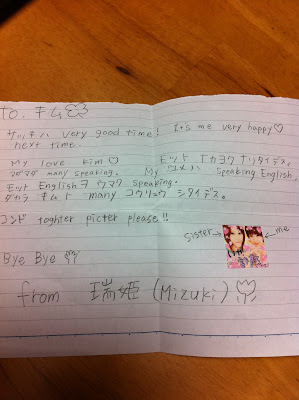 To. キム
サッキハ very good time! It's me very happy♡
next time.
My love kim♡ モット ナカヨクナリタイデス。
マダマダ many speaking. My ユメハ Speaking English.
モット Englishヲ ウマク speaking.
ダカラ キムト many コウリュウ シタイデス。
コンド toghter picter please!!
sister→ ←me
Bye Bye
from 瑞姫 (Mizuki)